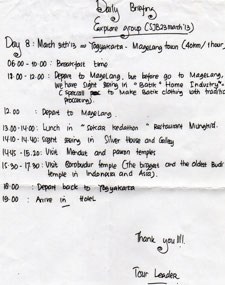 Daily
Explore group (SJB23march'13)
Day 8: March 3th'13 Yogyakarta - Magelang town (40km/1hour)
06.00 - 10.00 : Breakfast time
12.00 : Depart to Magelang, but before go to Magelang,
we have sight seeing in "Batik" Home Industry"
to Make Batik clothing both
processing)
12.00 . Depart to Magelang.
13.00 - 14.00 : Lunch in Restaurant
14.10 - 14.40: Sight seeing in Silver House and
14.45 - 15.20: Visit Mendut and pawon temples
15.30 - 17.30: Visit Borobudur temple (The biggest and the oldest
temple in Indonesia and Asia).
18.00 : Depart back to Yogyakarta
19.00 : Arrive in Hotel.
Thank you!!!.
Tour Leader